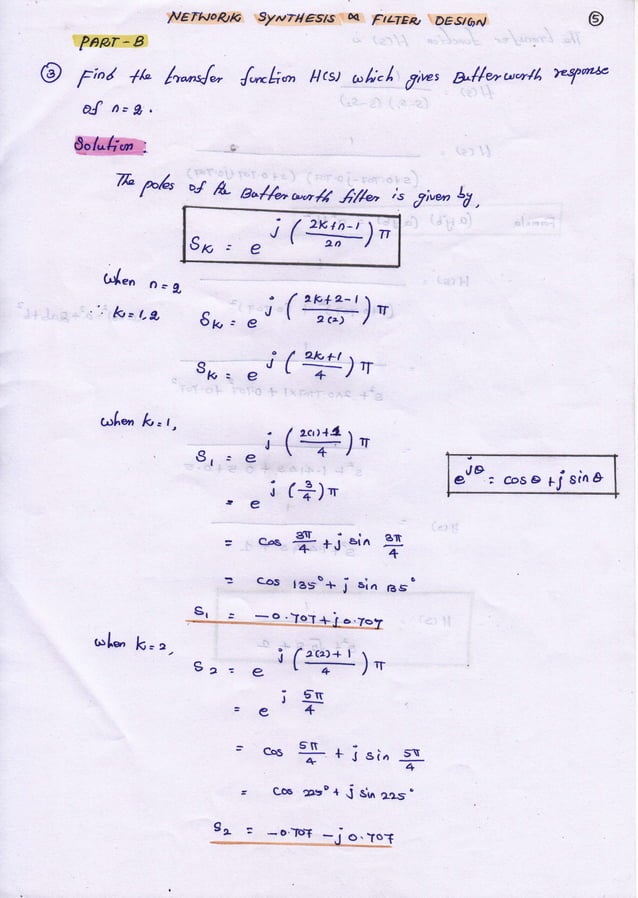 NETWORK SYNTHESIS & FILTER DESIGN
5
PART-B
3 Find the transfer function H(S) which gives Butterworth response
of n=2.
Solution:
The poles of the Butterworth filter is given by,
SK = e^j((2K+n-1)/2n)π
when n=2
∴ K=1,2 SK = e^j((2K+2-1)/2(2))π
SK = e^j((2K+1)/4)π
when K=1,
S1 = e^j((2(1)+1)/4)π
e^jθ = cosθ + j sinθ
= e^j(3/4)π
= cos 3π/4 + j sin 3π/4
= cos 135° + j sin 135°
S1 = -0.707 + j0.707
when K=2,
S2 = e^j((2(2)+1)/4)π
= e^j 5π/4
= cos 5π/4 + j sin 5π/4
= cos 225° + j sin 225°
S2 = -0.707 - j0.707